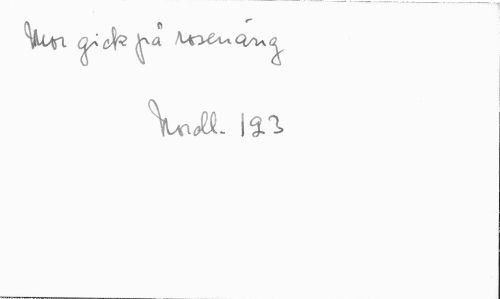 Mor gick på rosenäng
Nordl. 193